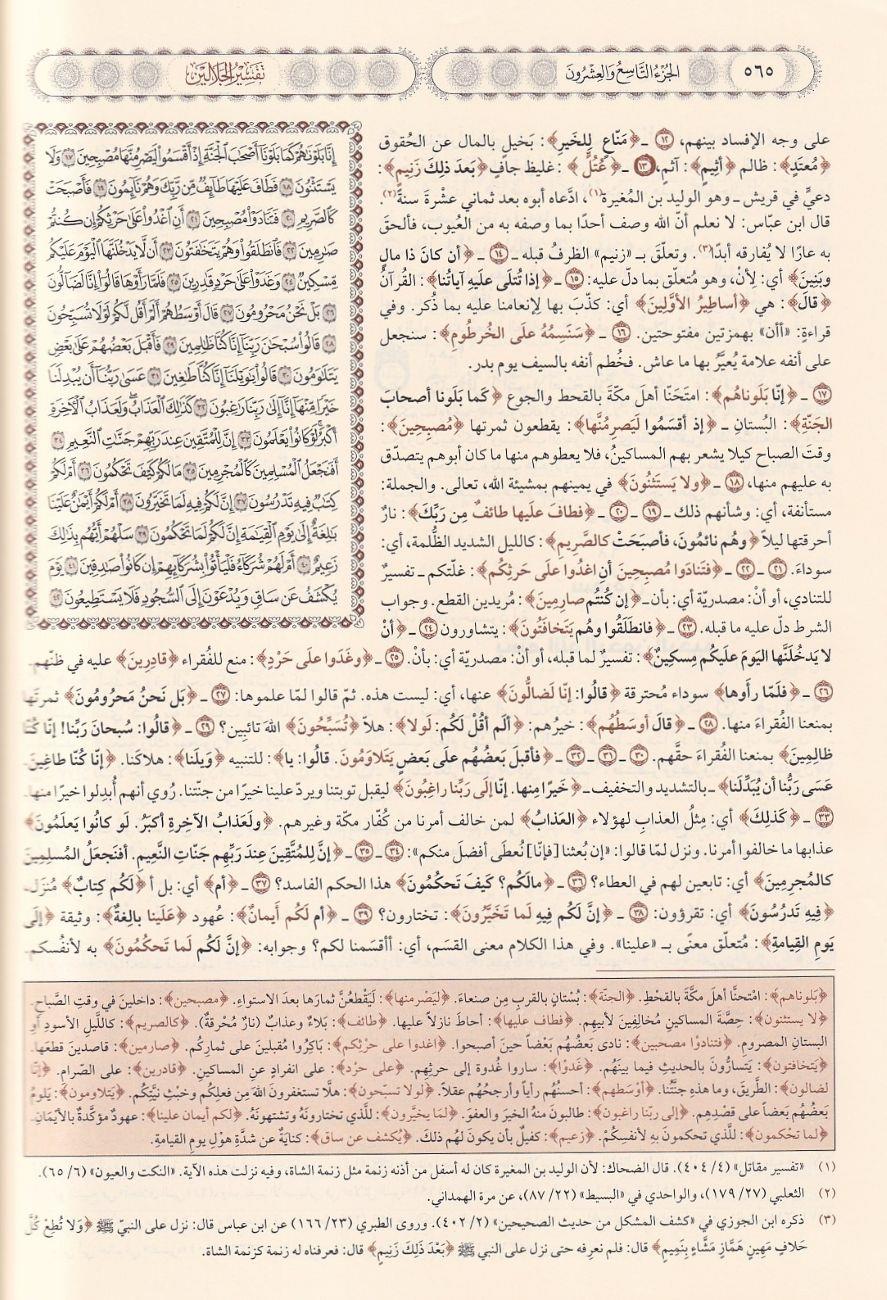 ٥٦٥
الجزء التاسع والعشرون
تفسير الجلالين
إنا بلوناهم كما بلونا أصحاب الجنة إذ أقسموا ليصرمنها مصبحين ١٧ ولا
يستثنون ١٨ فطاف عليها طائف من ربك وهم نائمون ١٩ فأصبحت
كالصريم ٢٠ فتنادوا مصبحين ٢١ أن اغدوا على حرثكم إن كنتم
صارمين ٢٢ فانطلقوا وهم يتخافتون ٢٣ أن لا يدخلنها اليوم عليكم
مسكين ٢٤ وغدوا على حرد قادرين ٢٥ فلما رأوها قالوا إنا لضالون
٢٦ بل نحن محرومون ٢٧ قال أوسطهم ألم أقل لكم لولا تسبحون
٢٨ قالوا سبحن ربنا إنا كنا ظالمين ٢٩ فأقبل بعضهم على بعض
يتلاومون ٣٠ قالوا يويلنا إنا كنا طاغين ٣١ عسى ربنا أن يبدلنا
خيرا منها إنا إلى ربنا راغبون ٣٢ كذلك العذاب ولعذاب الآخرة
أكبر لو كانوا يعلمون ٣٣ إن للمتقين عند ربهم جنات النعيم ٣٤
أفنجعل المسلمين كالمجرمين ٣٥ ما لكم كيف تحكمون ٣٦ أم لكم
كتب فيه تدرسون ٣٧ إن لكم فيه لما تخيرون ٣٨ أم لكم أيمن علينا
بلغة إلى يوم القيمة إن لكم لما تحكمون ٣٩ سلهم أيهم بذلك
زعيم ٤٠ أم لهم شركاء فليأتوا بشركائهم إن كانوا صادقين ٤١ يوم
يكشف عن ساق ويدعون إلى السجود فلا يستطيعون ٤٢
على وجه الإفساد بينهم، ١٢ ـ ﴿مَنّاعٍ لِلخَيرِ﴾: بَخيلٍ بالمال عن الحُقوق
﴿مُعتَدٍ﴾: ظالم ﴿أثِيمٍ﴾: آثمٍ، ١٣ ـ ﴿عُتُلٍّ﴾: غليظ جافٍ ﴿بَعدَ ذلكَ زَنِيمٍ﴾:
دعيٍّ في قريش ـ وهو الوليد بن المُغيرة(١)، ادّعاه أبوه بعد ثماني عشْرةَ سنةً(٢)
قال ابن عبّاس: لا نعلم أنّ الله وصف أحدًا بما وصفه به من العُيوب، فألحقَ
به عارًا لا يُفارقه أبدًا(٣). وتعلّق بـ«زنيم» الظرفُ قبله ـ ١٤ ـ ﴿أن كانَ ذا مالٍ
وبَنِينَ﴾ أي: لِأنْ، وهو مُتعلّق بما دلّ عليه: ١٥ ـ ﴿إذا تُتلَى علَيهِ آياتُنا﴾: القُرآنُ
﴿قالَ﴾: هي ﴿أساطِيرُ الأوَّلِينَ﴾ أي: كذّبَ بها لإنعامنا عليه بما ذُكر. وفي
قراءة: «أأن» بهمزتين مفتوحتين. ١٦ ـ ﴿سَنَسِمُهُ علَى الخُرطُومِ﴾: سنجعل
على أنفه علامة يُعيَّرُ بها ما عاش. فخُطم أنفه بالسيف يوم بدر.
١٧ ـ ﴿إنّا بَلَوناهُم﴾: امتَحَنّا أهلَ مكّةَ بالقحط والجوع ﴿كَما بَلَونا أصحابَ
الجَنّةِ﴾: البُستانِ ـ ﴿إذ أقسَمُوا لَيَصرِمُنَّها﴾: يقطعون ثمرتها ﴿مُصبِحِينَ﴾:
وقتَ الصباح كيلا يشعر بهم المساكينُ، فلا يعطوهم منها ما كان أبوهم يتصدّق
به عليهم منها، ١٨ ـ ﴿ولا يَستَثنُونَ﴾ في يمينهم بمشيئة الله، تعالى. والجملة:
مستأنفة، أي: وشأنهم ذلك ـ ١٩ ـ ٢٠ ـ ﴿فطافَ علَيها طائفٌ مِن رَبِّكَ﴾: نارٌ
أحرقتها ليلًا ﴿وهُم نائمُونَ، فأصبَحَتْ كالصَّرِيمِ﴾: كالليل الشديد الظُّلمة، أي:
سوداءَ. ٢١ ـ ٢٢ ـ ﴿فتَنادَوا مُصبِحِينَ أنِ اغدُوا علَى حَرثِكُم﴾: غلّتكم ـ تفسيرٌ
للتنادي، أو أنْ: مصدريّة أي: بأن ـ ﴿إن كُنتُم صارِمِينَ﴾: مُريدين القطع. وجواب
الشرط دلّ عليه ما قبله. ٢٣ ـ ﴿فانطلَقُوا وهُم يَتخافَتُونَ﴾: يتشاورون ٢٤ ـ ﴿أنْ
لا يَدخُلَنَّها اليَومَ علَيكُم مِسكِينٌ﴾: تفسيرٌ لما قبله، أو أنْ: مصدريّة أي: بأنْ. ٢٥ ـ ﴿وغَدَوا علَى حَرْدٍ﴾: منع للفُقراء ﴿قادِرِينَ﴾ عليه في ظنّهم.
٢٦ ـ ﴿فلَمّا رأوها﴾ سوداء مُحترقة ﴿قالُوا: إنّا لَضالُّونَ﴾ عنها، أي: ليست هذه. ثمّ قالوا لمّا علموها: ٢٧ ـ ﴿بَل نَحنُ مَحرُومُونَ﴾ ثمرتَها
بمنعنا الفُقراءَ منها. ٢٨ ـ ﴿قالَ أوسَطُهُم﴾: خيرُهم: ﴿ألَم أقُلْ لَكُم: لَولا﴾: هلاّ ﴿تُسَبِّحُونَ﴾ اللهَ تائبين؟ ٢٩ ـ ﴿قالُوا: سُبحانَ رَبِّنا! إنّا كُنّا
ظالِمِينَ﴾ بمنعنا الفُقراءَ حقَّهم. ٣٠ ـ ٣١ ـ ٣٢ ـ ﴿فأقبَلَ بَعضُهُم علَى بَعضٍ يَتَلاوَمُونَ. قالُوا: يا﴾: للتنبيه ﴿وَيلَنا﴾: هلاكَنا. ﴿إنّا كُنّا طاغِينَ.
عَسَى رَبُّنا أن يُبْدِلَنا﴾ ـ بالتشديد والتخفيف ـ ﴿خَيرًا مِنها. إنّا إلَى رَبِّنا راغِبُونَ﴾ ليقبل توبتنا ويردّ علينا خيرًا من جنّتنا. رُوي أنهم أُبدِلوا خيرًا منها.
٣٣ ـ ﴿كَذلِكَ﴾ أي: مِثلُ العذاب لهؤلاء ﴿العَذابُ﴾ لمن خالف أمرنا من كُفّار مكّة وغيرهم. ﴿ولَعَذابُ الآخِرةِ أكبَرُ. لَو كانُوا يَعلَمُونَ﴾
عذابها ما خالفوا أمرنا. ونزل لمّا قالوا: «إن بُعثنا [فإنّا] نُعطَى أفضلَ منكم»: ٣٤ ـ ٣٥ ـ ﴿إنَّ لِلمُتَّقِينَ عِندَ رَبِّهِم جَنّاتِ النَّعِيمِ. أفنَجعَلُ المُسلِمِينَ
كالمُجرِمِينَ﴾ أي: تابعين لهم في العطاء؟ ٣٦ ـ ﴿مالَكُم؟ كَيفَ تَحكُمُونَ﴾ هذا الحكم الفاسد؟ ٣٧ ـ ﴿أم﴾ أي: بل أ ﴿لَكُم كِتابٌ﴾ مُنزَل.
﴿فِيهِ تَدرُسُونَ﴾ أي: تقرؤون: ٣٨ ـ ﴿إنَّ لَكُم فِيهِ لَما تَخَيَّرُونَ﴾: تختارون؟ ٣٩ ـ ﴿أم لَكُم أيمانٌ﴾: عُهود ﴿علَينا بالِغةٌ﴾: وثيقة ﴿إلَى
يَومِ القِيامةِ﴾: مُتعلّق معنًى بـ «علينا». وفي هذا الكلام معنى القسَم، أي: أأقسَمنا لكم؟ وجوابه: ﴿إنَّ لَكُم لَما تَحكُمُونَ﴾ به لأنفُسكم
﴿بَلَوناهم﴾: امْتحنَّا أهلَ مكَّةَ بالقَحطِ. ﴿الجنَّة﴾: بُسْتانٍ بالقربِ مِن صنعاءَ. ﴿ليَصْرمنها﴾: لَيَقْطعُنَّ ثمارَها بعدَ الاستواءِ. ﴿مصبحين﴾: داخلينَ في وقتِ الصَّباحِ.
﴿لا يستثنون﴾: حِصَّةَ المساكينِ مُخالِفِينَ لأبيهم. ﴿فطاف عليها﴾: أحاطَ نازلاً عليها. ﴿طائف﴾: بَلاءٌ وعذابٌ (نارٌ مُحْرِقةٌ). ﴿كالصريم﴾: كاللَّيلِ الأسودِ أو
البستانِ المصرومِ. ﴿فتنادوا مصبحين﴾: نادى بَعضُهُم بَعضاً حينَ أصبحوا. ﴿اغدوا على حرْثِكُم﴾: باكِرُوا مُقبلينَ على ثمارِكُم. ﴿صارمين﴾: قاصدينَ قطعَها.
﴿يتخافتون﴾: يَتسارُّونَ بالحديثِ فيما بينَهُم. ﴿غَدَوْا﴾: ساروا غُدوة إلى حرثِهِم. ﴿على حرْد﴾: على انفرادٍ عنِ المساكينِ. ﴿قادرين﴾: على الصِّرامِ. ﴿إنَّا
لضالون﴾: الطَّريقَ، وما هذهِ جنَّتُنا. ﴿أوْسَطُهم﴾: أحسنُهُم رأياً وأرجحُهُم عقلاً. ﴿لولا تسبّحون﴾: هلَّا تستغفرونَ اللهَ مِن فعلِكُم وخبْثِ نيَّتِكُم. ﴿يتلاومون﴾: يَلومُ
بَعضُهُم بَعضاً على قصْدِهِم. ﴿إلى ربّنا راغبون﴾: طالبونَ منهُ الخيرَ والعفوَ. ﴿لما يخيَّرون﴾: للَّذي تختارونَهُ وتشتهونَهُ. ﴿لكم أيمان علينا﴾: عهودٌ مؤكَّدةٌ بالأيْمانِ.
﴿لما تحْكمون﴾: للَّذي تحكمونَ بهِ لأنفسِكُمْ. ﴿زعيم﴾: كفيلٌ بأن يكونَ لهُم ذلكَ. ﴿يُكشف عن ساق﴾: كنايةٌ عن شدَّةِ هوْلِ يومِ القيامةِ.
(١) «تفسير مقاتل» (٤/ ٤٠٤). قال الضحاك: لأن الوليد بن المغيرة كان له أسفل من أذنه زنمة مثل زنمة الشاة، وفيه نزلت هذه الآية. «النكت والعيون» (٦/ ٦٥).
(٢) الثعلبي (٢٧/ ١٧٩)، والواحدي في «البسيط» (٢٢/ ٨٧)، عن مرة الهمداني.
(٣) ذكره ابن الجوزي في «كشف المشكل من حديث الصحيحين» (٢/ ٤٠٢). وروى الطبري (٢٣/ ١٦٦) عن ابن عباس قال: نزل على النبيّ ﷺ ﴿وَلَا تُطِعْ كُلَّ
حَلَّافٍ مَهِينٍ هَمَّازٍ مَشَّاءٍ بِنَمِيمٍ﴾ قال: فلم نعرِفه حتى نزل على النبي ﷺ ﴿بَعْدَ ذَلِكَ زَنِيمٍ﴾ قال: فعرفناه له زنمة كزنمة الشاة.